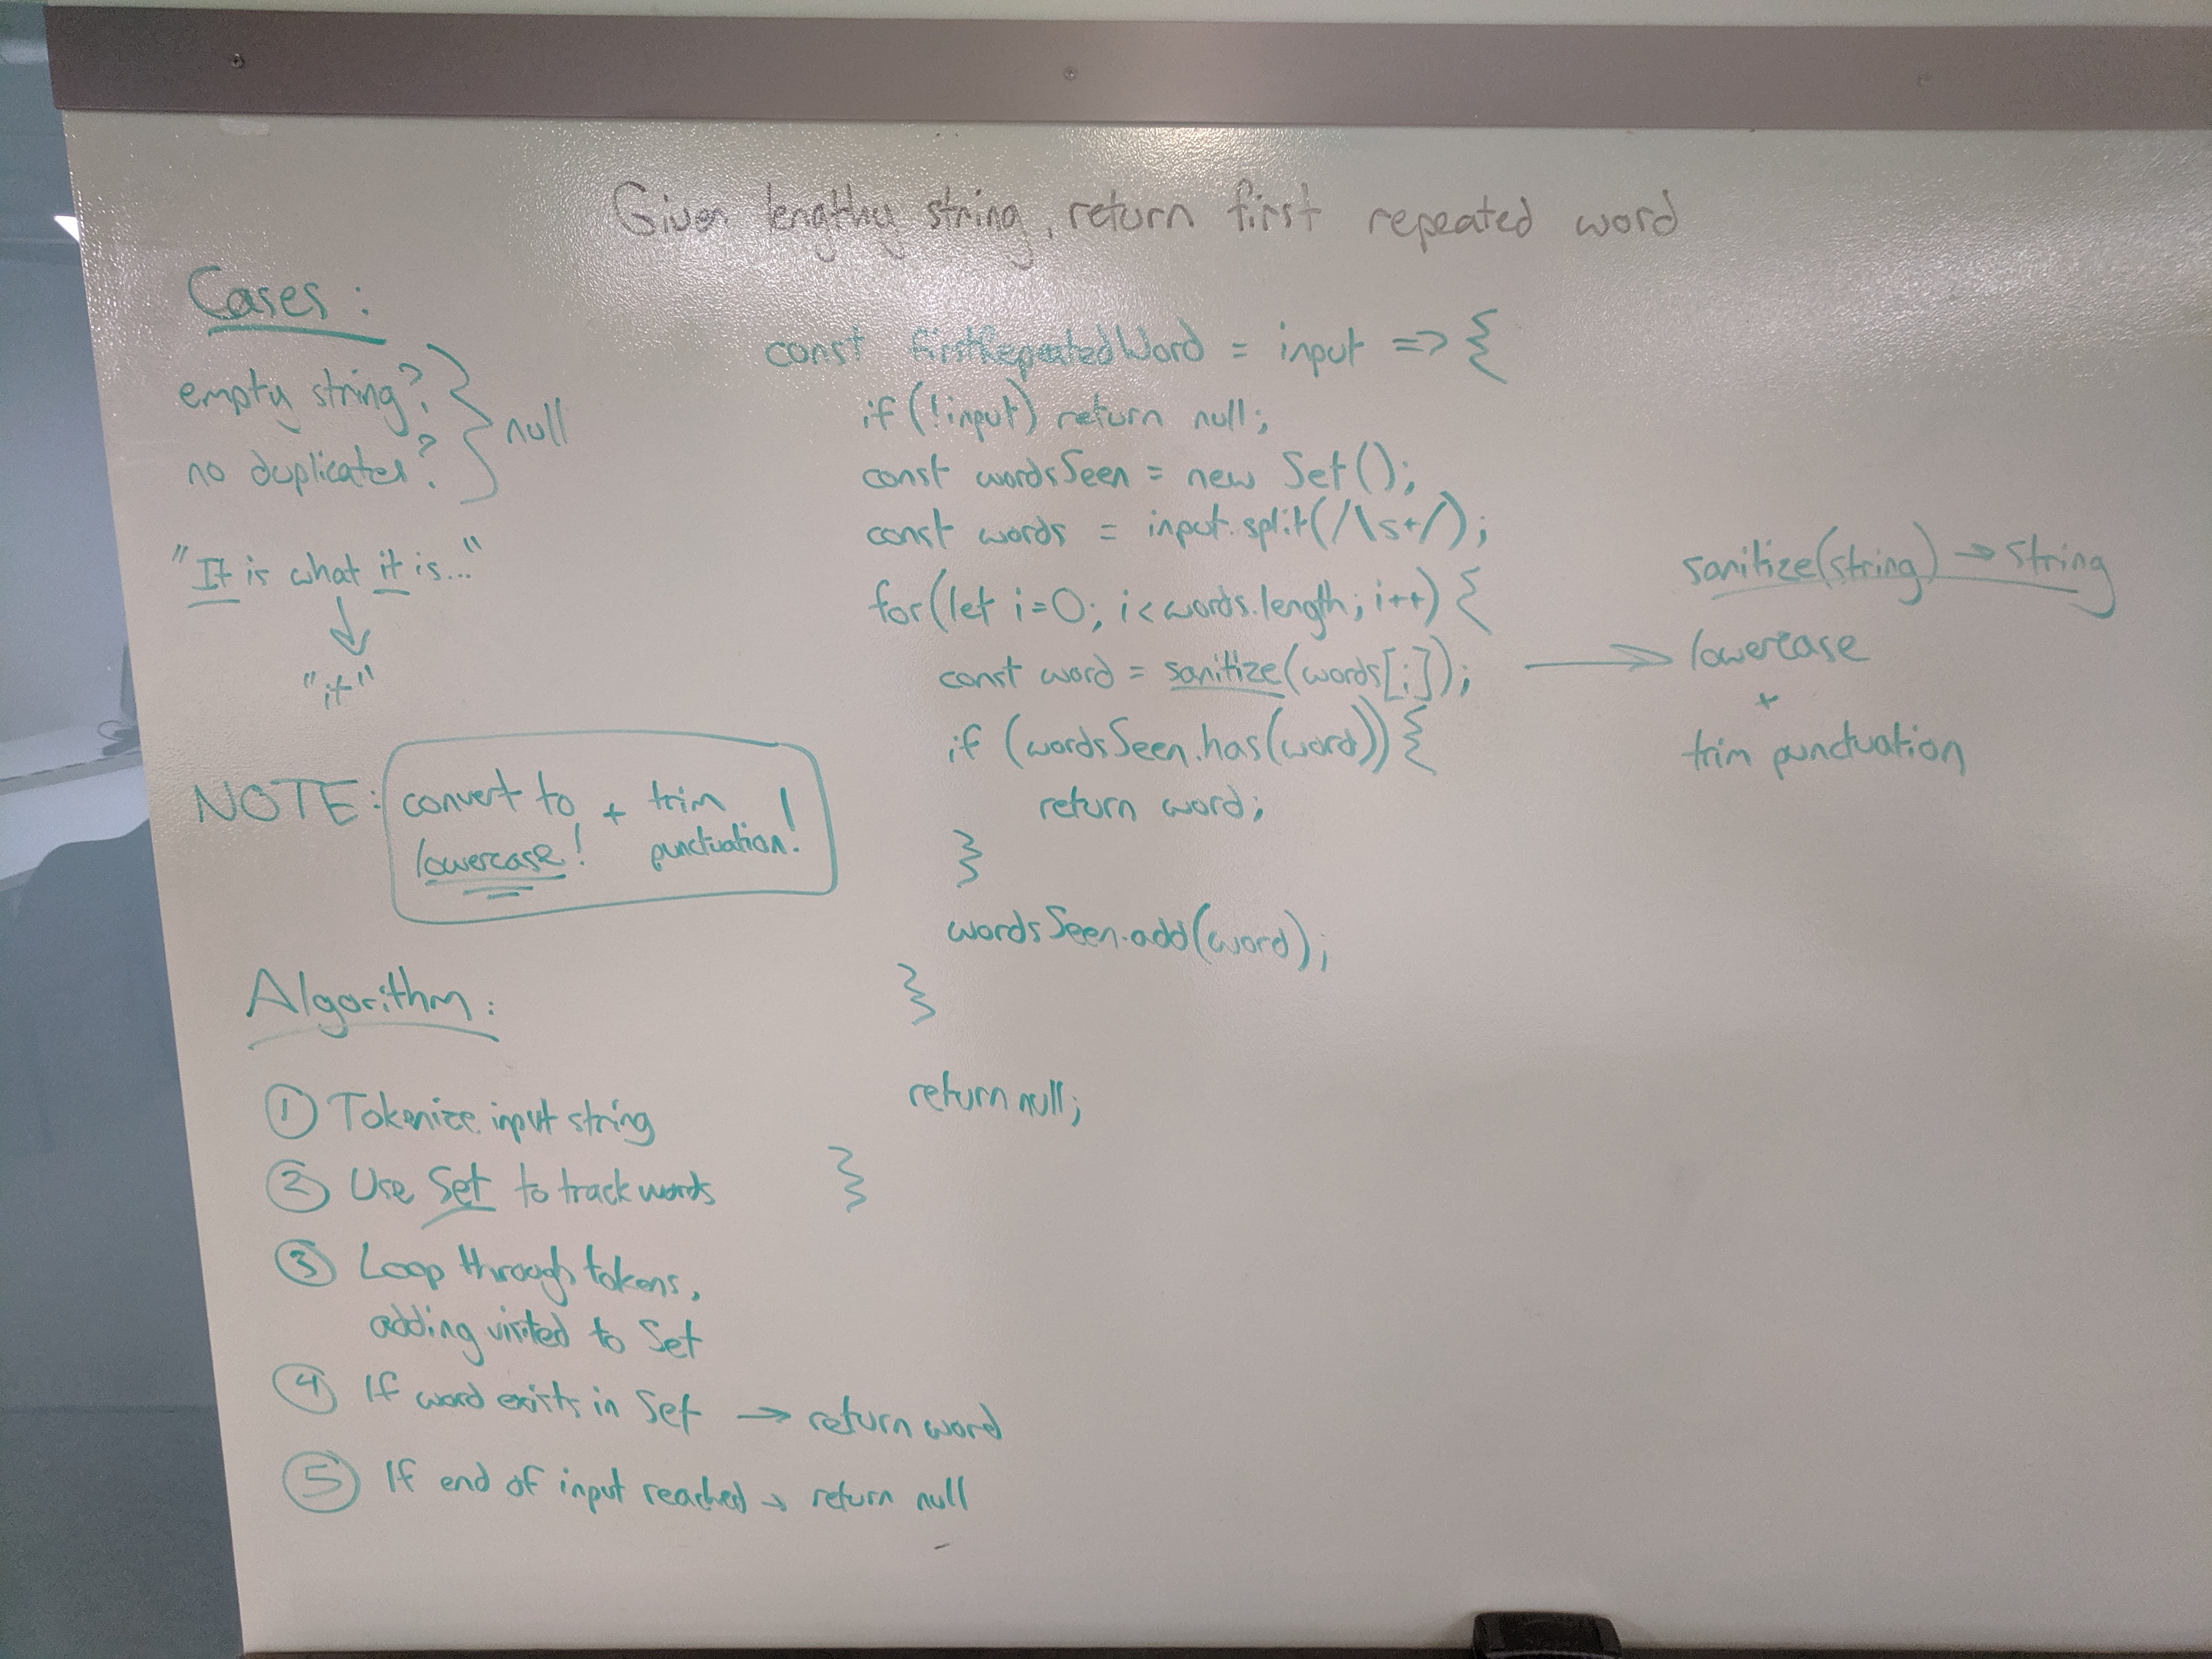 Given lengthy string, return first repeated word
Cases:
empty string?
no duplicates?
null
"It is what it is..."
"it"
NOTE:
convert to
lowercase!
+
trim
punctuation!
Algorithm:
① Tokenize input string
② Use Set to track words
③ Loop through tokens,
adding visited to Set
④ If word exists in Set → return word
⑤ If end of input reached → return null
const firstRepeatedWord = input => {
if (!input) return null;
const wordsSeen = new Set();
const words = input.split(/\s+/);
for(let i=0; i<words.length; i++) {
const word = sanitize(words[i]);
if (wordsSeen.has(word)) {
return word;
}
wordsSeen.add(word);
}
return null;
}
sanitize(string) → string
→ lowercase
+
trim punctuation